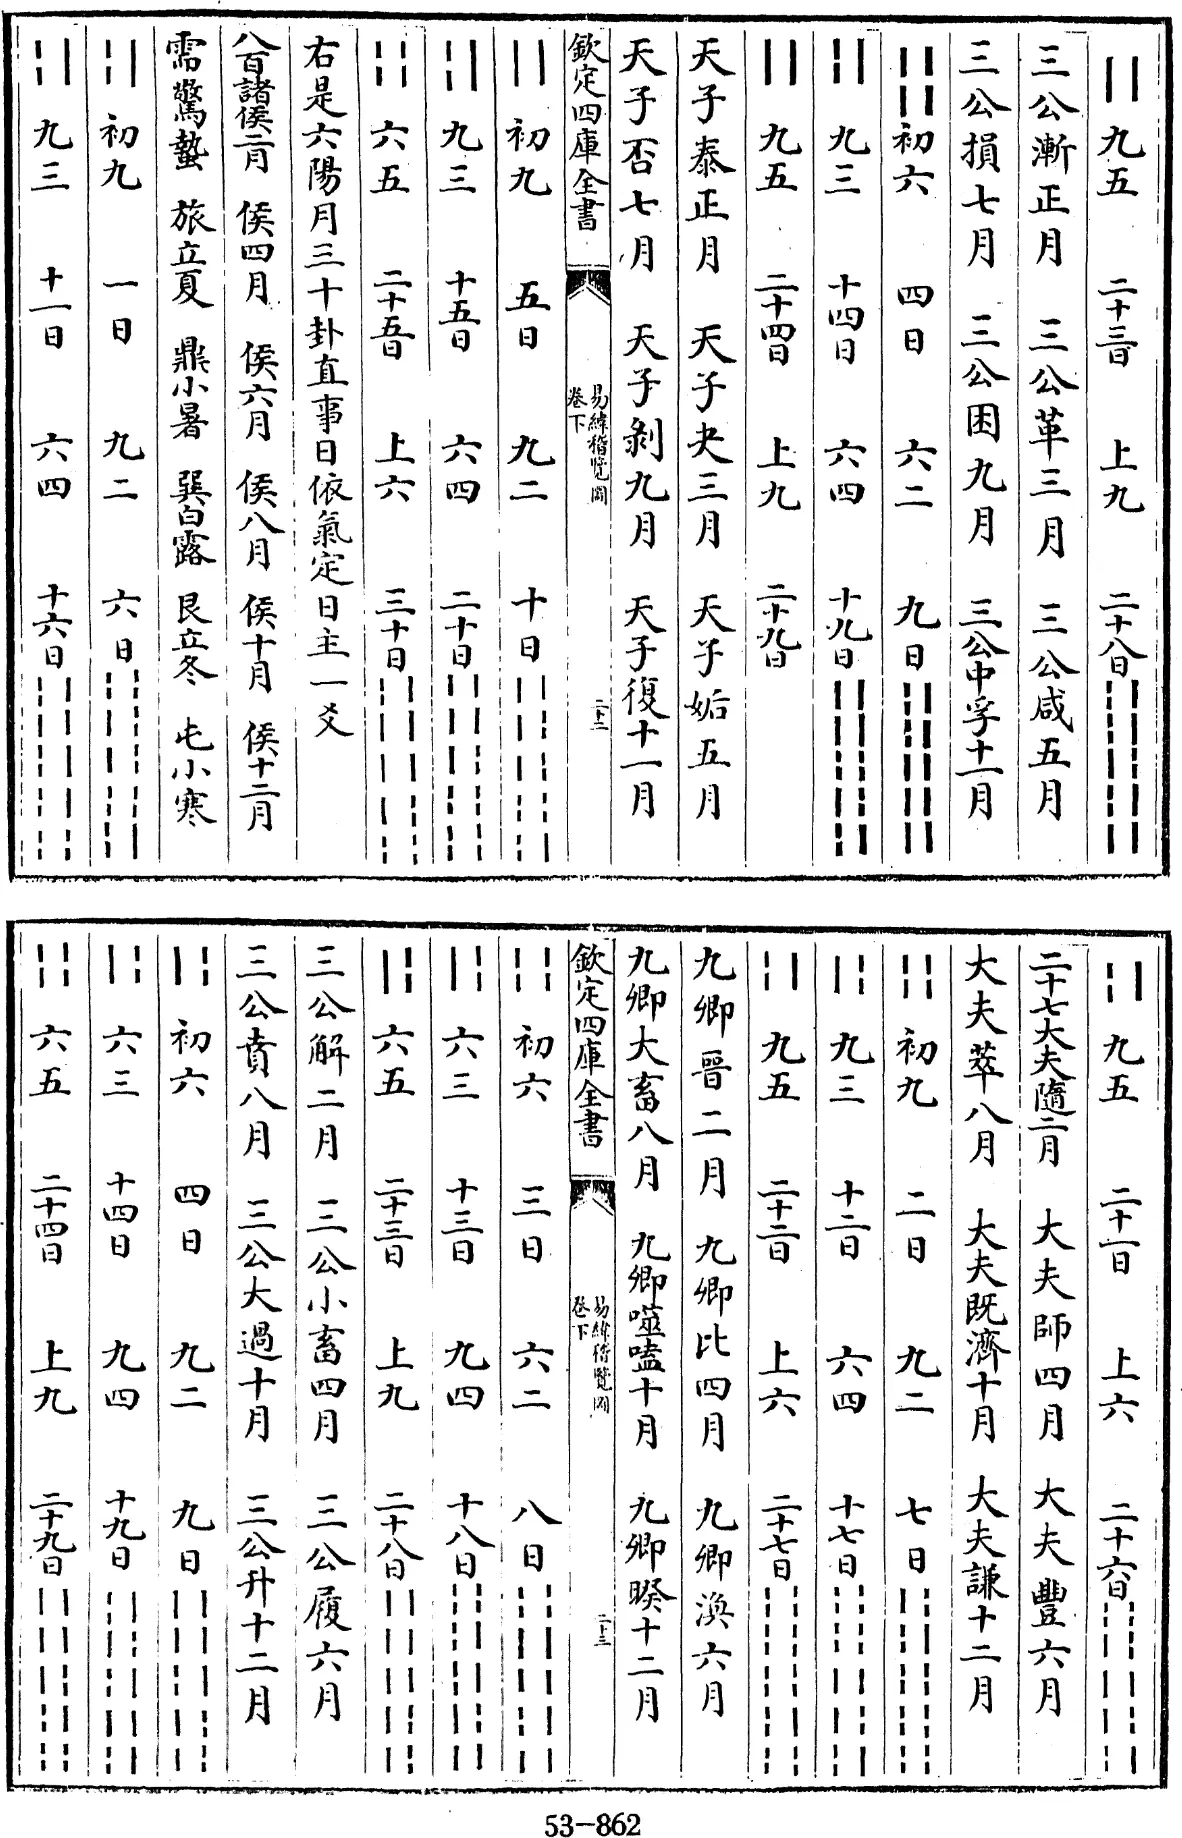 九五 二十三日 上九 二十八日
三公漸正月 三公革三月 三公咸五月
三公損七月 三公困九月 三公中孚十一月
初六 四日 六二 九日
九三 十四日 六四 十九日
九五 二十四日 上九 二十九日
天子泰正月 天子夬三月 天子姤五月
天子否七月 天子剝九月 天子復十一月
欽定四庫全書 易緯稽覽圖 卷下 二十二
初九 五日 九二 十日
九三 十五日 六四 二十日
六五 二十五日 上六 三十日
右是六陽月三十卦直事日依氣定日主一爻
八百諸侯二月 侯四月 侯六月 侯八月 侯十月 侯十二月
需驚蟄 旅立夏 鼎小暑 巽白露 艮立冬 屯小寒
初九 一日 九二 六日
九三 十一日 六四 十六日
九五 二十一日 上六 二十六日
二十七大夫隨二月 大夫師四月 大夫豐六月
大夫萃八月 大夫既濟十月 大夫謙十二月
初九 二日 九二 七日
九三 十二日 六四 十七日
九五 二十二日 上六 二十七日
九卿晉二月 九卿比四月 九卿渙六月
九卿大畜八月 九卿噬嗑十月 九卿睽十二月
欽定四庫全書 易緯稽覽圖 卷下 二十三
初六 三日 六二 八日
六三 十三日 九四 十八日
六五 二十三日 上九 二十八日
三公解二月 三公小畜四月 三公履六月
三公賁八月 三公大過十月 三公升十二月
初六 四日 九二 九日
六三 十四日 九四 十九日
六五 二十四日 上九 二十九日
53-862